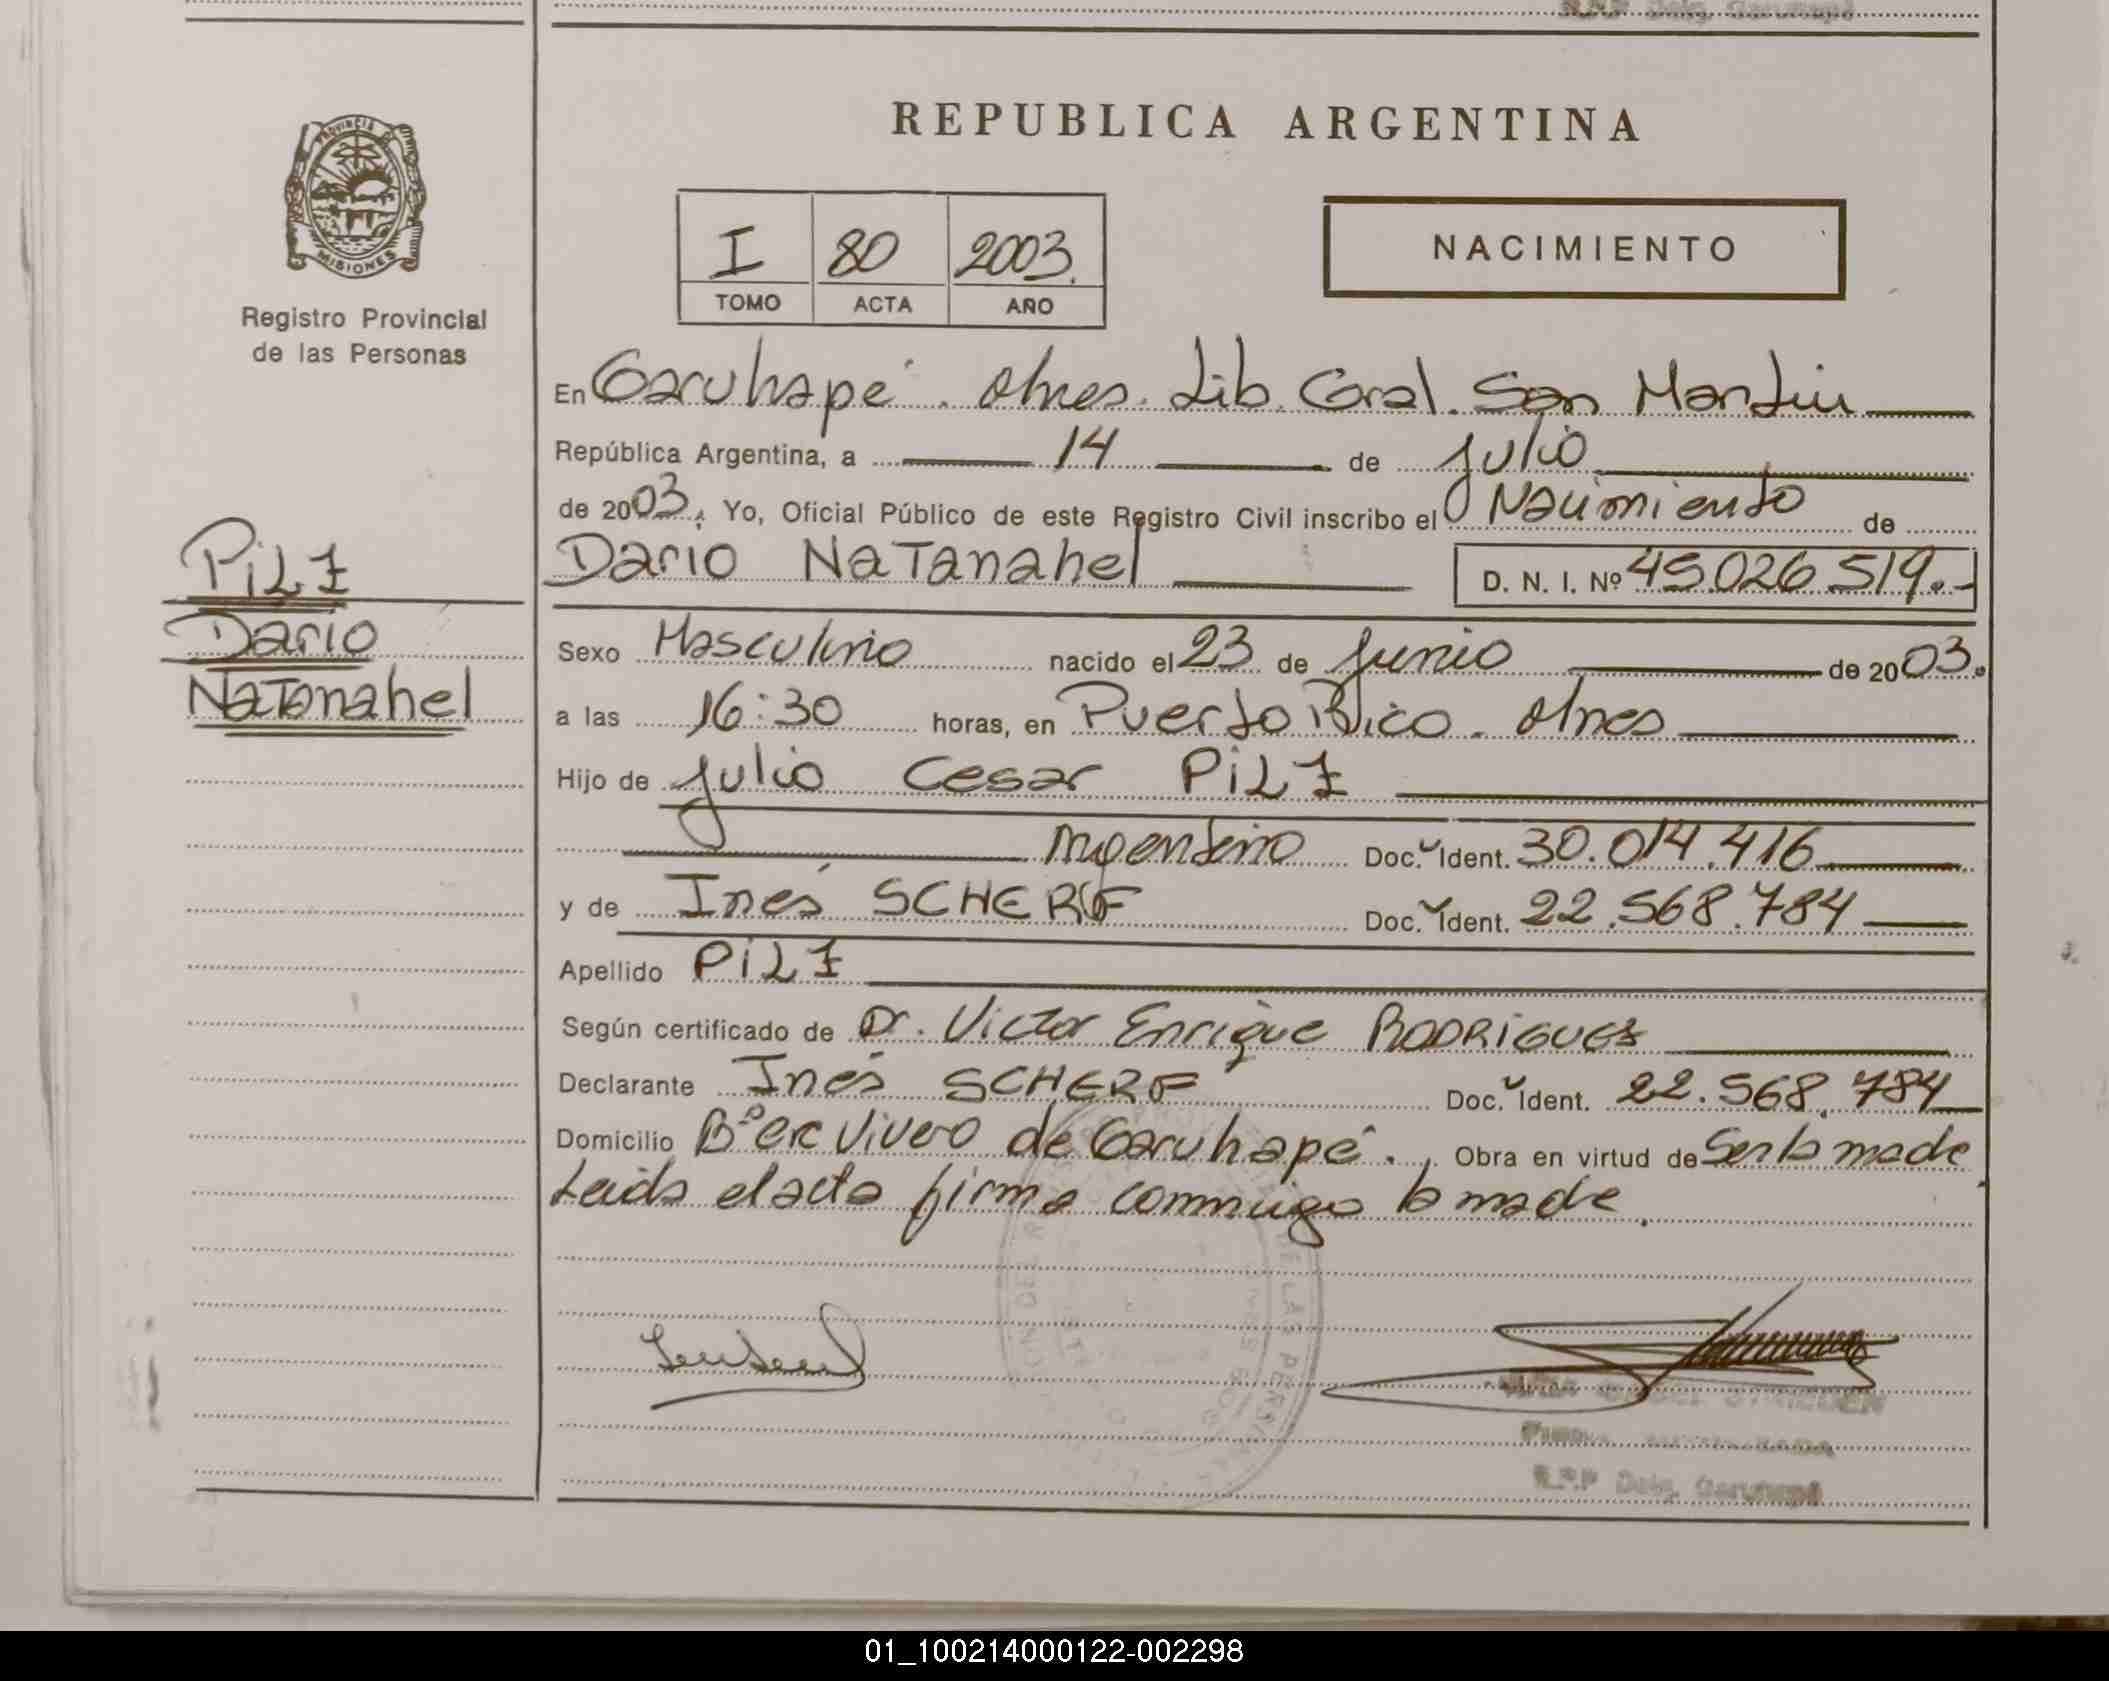 R.P.P Deleg. Garuhapé
REPUBLICA ARGENTINA
PROVINCIA DE
MISIONES
Registro Provincial
de las Personas
I 80 2003.
TOMO ACTA AÑO
NACIMIENTO
En Garuhapé. Mnes. Lib. Gral. San Martin
República Argentina, a 14 de Julio
de 2003, Yo, Oficial Público de este Registro Civil inscribo el Nacimiento de
Dario NaTanahel D. N. I. Nº 45.026.519.-
PiLZ
Dario
NaTanahel
Sexo Masculino nacido el 23 de Junio de 2003.
a las 16:30 horas, en Puerto Rico. Mnes
Hijo de Julio Cesar PiLZ
Argentino Doc. Ident. 30.014.416
y de Inés SCHERF Doc. Ident. 22.568.784
Apellido PiLZ
Según certificado de Dr. Victor Enrique RODRIGUES
Declarante Inés SCHERF Doc. Ident. 22.568.784
Domicilio Bº Vivero de Garuhapé. , Obra en virtud de Ser la madre
Leida el acta firma conmigo la madre.
DE LAS PERSONAS
R.P.P Deleg. Garuhapé
01_100214000122-002298